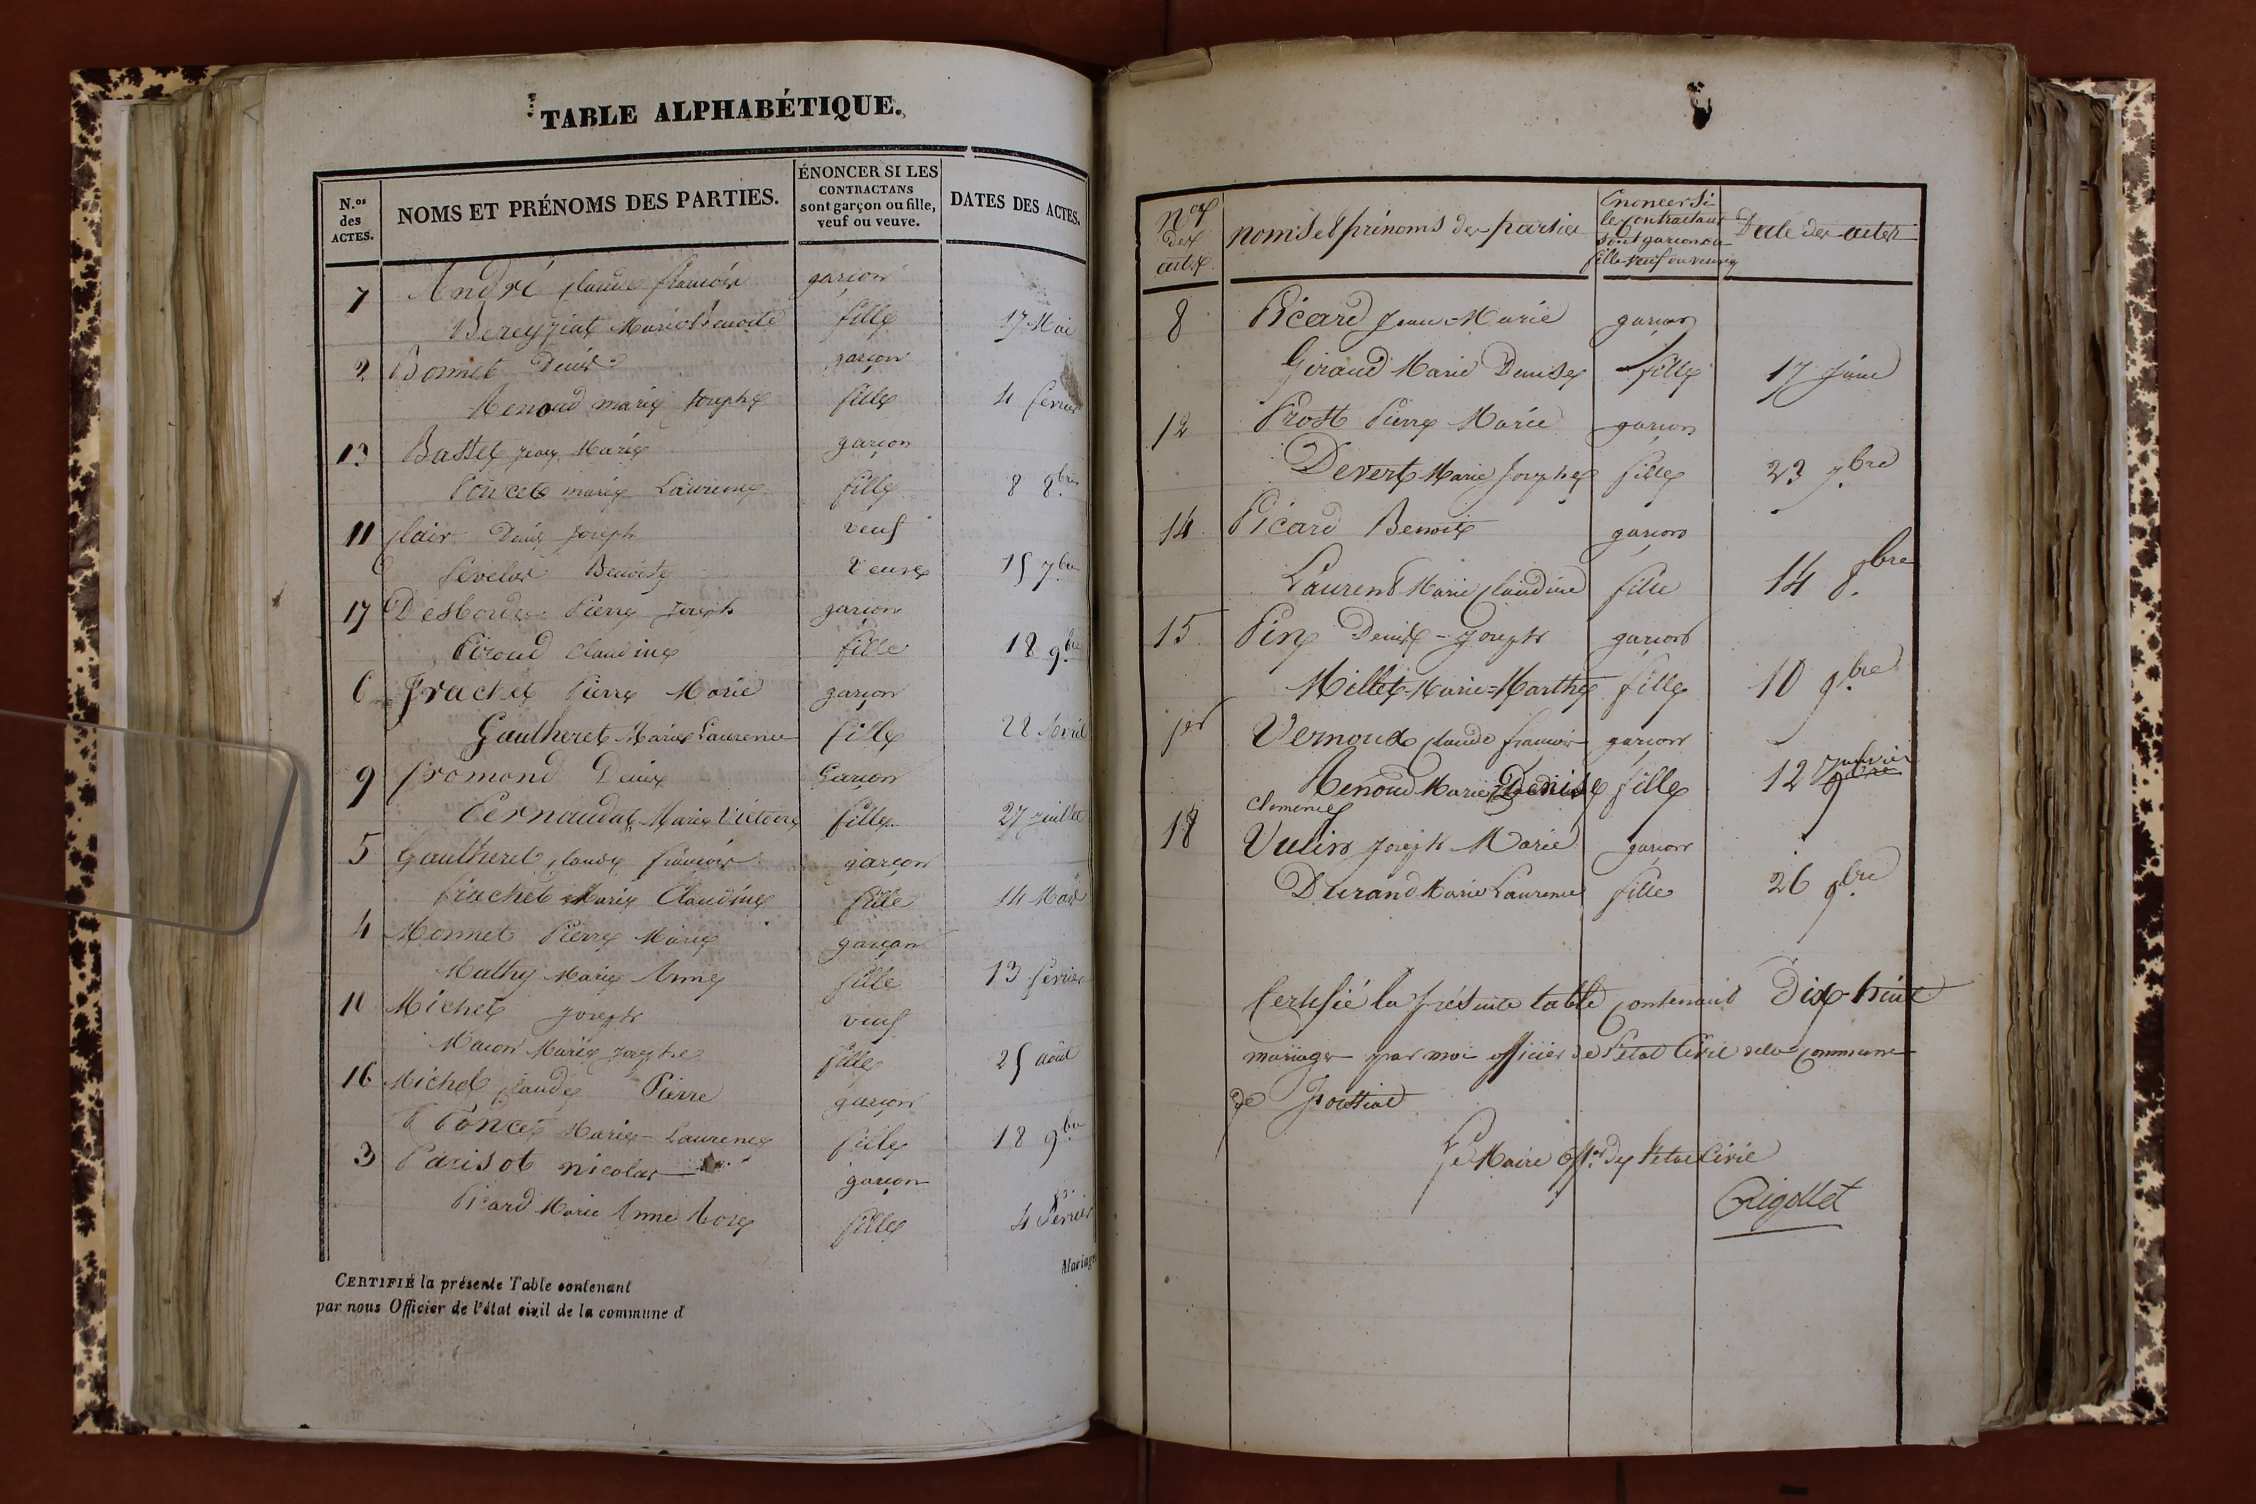 TABLE ALPHABÉTIQUE.
N.os des ACTES.
NOMS ET PRÉNOMS DES PARTIES.
ÉNONCER SI LES CONTRACTANS sont garçon ou fille, veuf ou veuve.
DATES DES ACTES.
7 André Claude françois garçon
Bereyziat Marie Benoite fille 17 Mai
2 Bonnet Denis garçon
Renoud marie Josephe fille 4 fevrier
13 Basset Jean Marie garçon
Poncet marie Laurence fille 8 8bre
11 Clair Denis Joseph veuf
Benoite veuve 15 7bre
17 Desbordes Pierre Joseph garçon
Piroud Claudine fille 18 9bre
6 Frachet Pierre Marie garçon
Gautheret Marie Laurence fille 28 Avril
9 fromond Denis Garçon
Pernaudat Marie Victoire fille 27 Juillet
5 Gautheret Claude françois garçon
frachet Marie Claudine fille 14 Mars
4 Monnet Pierre Marie garçon
Mathy Marie Anne fille 13 fevrier
10 Michel Joseph veuf
Macon Marie Josephe fille 25 août
16 Michel Claude Pierre garçon
Poncet Marie Laurence fille 18 9bre
3 Parisot nicolas garçon
Picard Marie Anne Rose fille 4 Fevrier
Mariages
CERTIFIÉ la présente Table contenant
par nous Officier de l'état civil de la commune d
Nos des actes
noms et prénoms des parties
Enoncer si les contractans sont garçon ou fille veuf ou veuve
Date des actes
8 Picard Jean-Marie garçon
Giraud Marie Denise fille 17 Juin
12 Prost Pierre Marie garçon
Devert Marie Josephe fille 23 7bre
14 Picard Benoit garçon
Laurent Marie Claudine fille 14 8bre
15 Pin Denis-Joseph garçon
Millet-Marie=Marthe fille 10 9bre
1er Vernoux Claude françois garçon
Renoud Marie Denise fille 12 Janvier
Clemence
18 Vulin Joseph Marie garçon
Durand Marie Laurence fille 26 9bre
Certifié la présente table contenant Dix-huit
mariages par moi officier de l'état Civil de la commune
de
Le Maire Offer de l'etat Civil
Rigollet